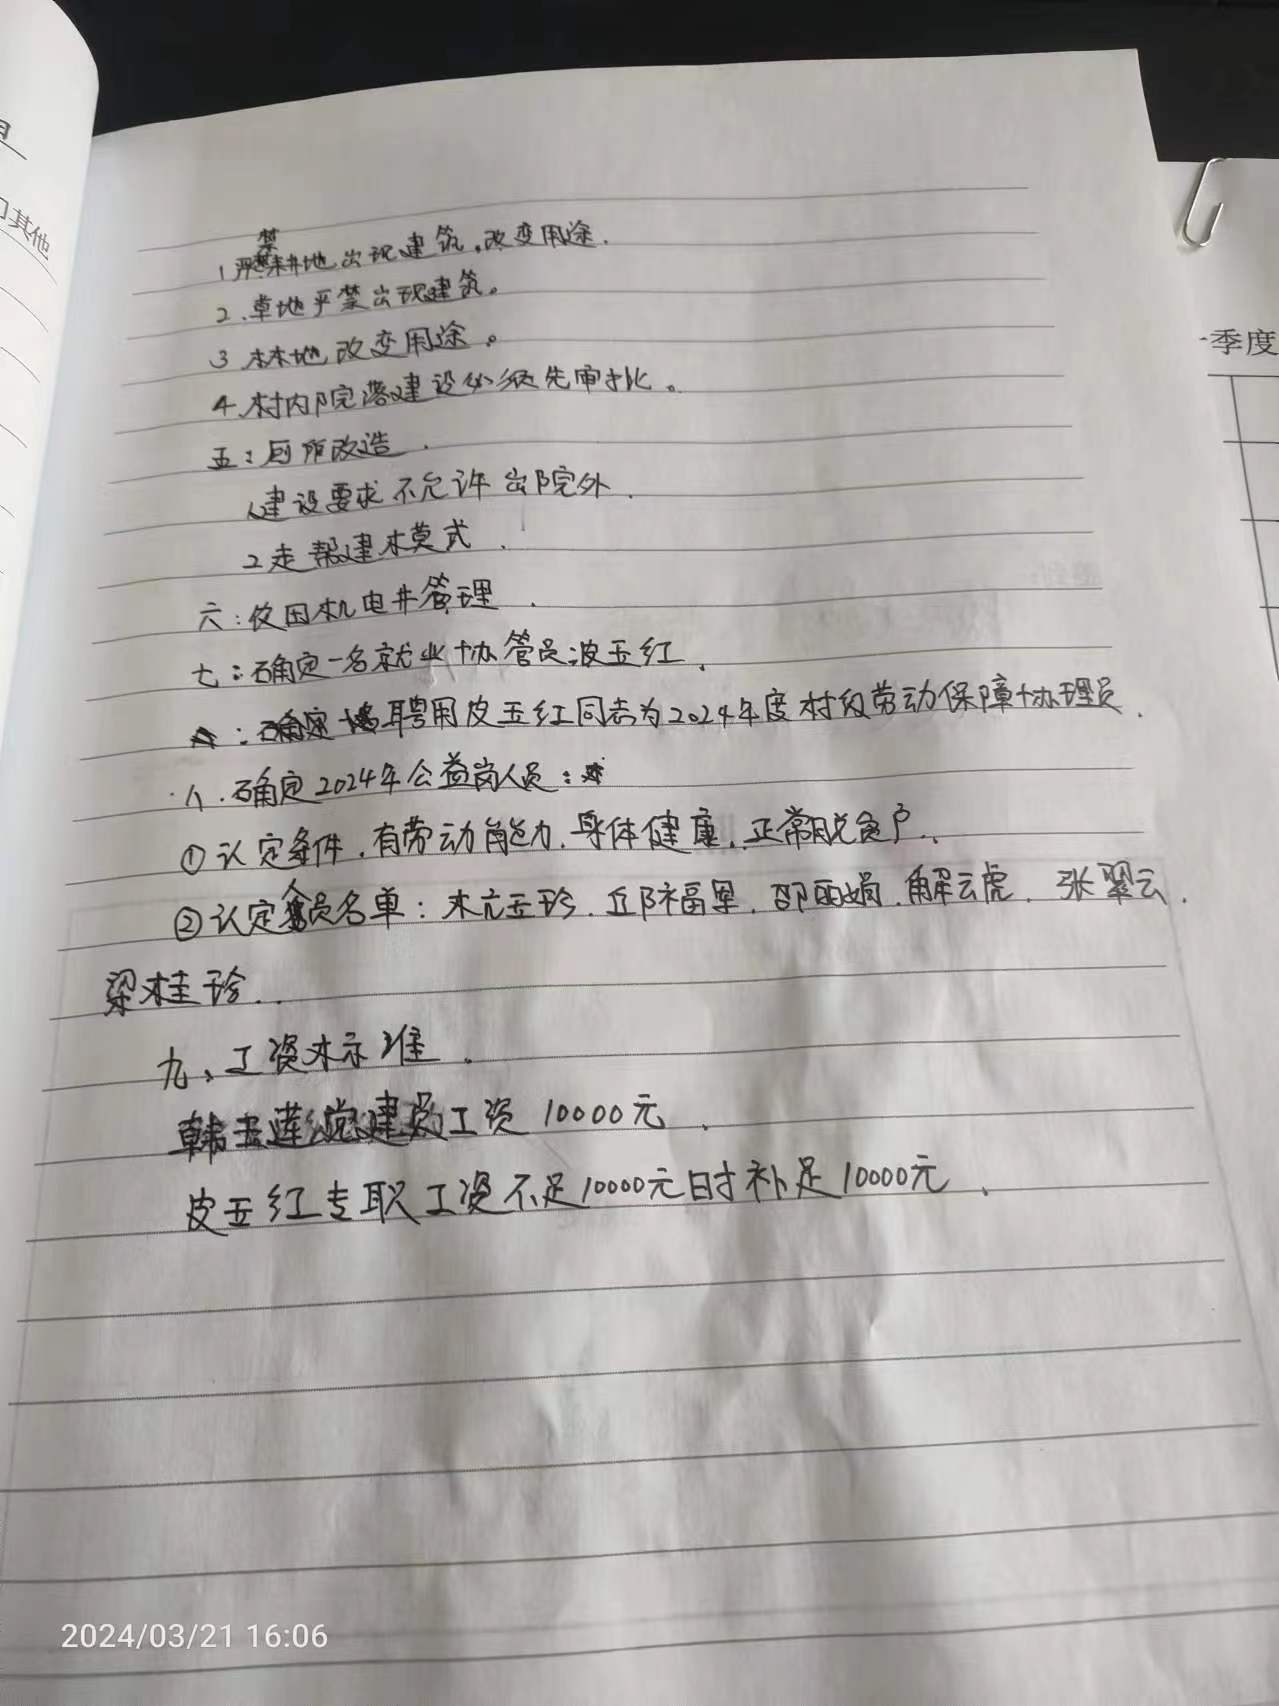 其他
季度
1.严禁耕地出现建筑,改变用途.
2.草地严禁出现建筑。
3.林地改变用途。
4.村内院落建设必须先审批。
五:厕所改造.
1.建设要求不允许出院外.
2走帮建模式.
六:农田机电井管理.
七:确定一名就业协管员:皮玉红.
聘用皮玉红同志为2024年度村级劳动保障协理员.
八.确定2024年公益岗人员:
①认定条件.有劳动能力.身体健康.正常脱贫户.
②认定人员名单:杭玉珍.邱福里.邵丽娟.解云虎.张翠云.
梁桂珍..
九、工资标准.
韩玉莲党建员工资10000元.
皮玉红专职工资不足10000元时补足10000元.
2024/03/21 16:06